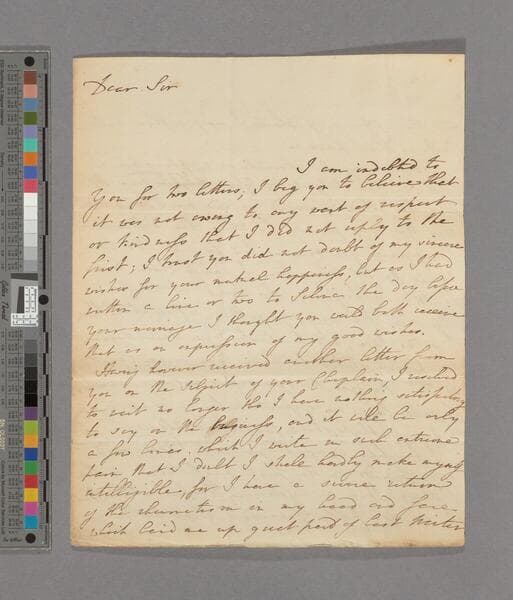 Dear Sir
I am indebted to
you for two letters; I beg you to believe that
it was not owing to any want of respect
or kindness that I did not reply to the
first; I trust you did not doubt of my sincere
wishes for your mutual happiness, but as I had
written a line or two to the day before
your marriage I thought you would both receive
that as an expression of my good wishes.
Having however received another letter from
you on the subject of your Chaplain, I resolved
to wait no longer tho' I have nothing satisfactory
to say on the business, and it will be only
a few lines which I write in such extreme
pain that I doubt I shall hardly make myself
intelligible, for I have a severe return
of the rheumatism in my head and face
which laid me up great part of last Winter